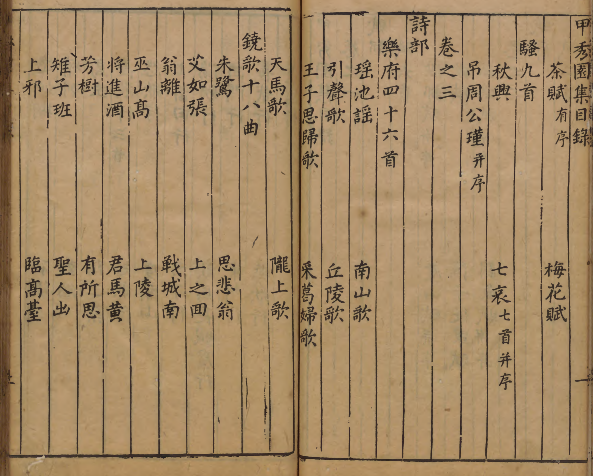 甲秀園集目錄
茶賦有序 梅花賦
騷九首
秋興 七哀七首并序
吊周公瑾并序
卷之三
詩部
樂府四十六首
瑶池謡 南山歌
引聲歌 丘陵歌
王子思歸歌 采葛婦歌
天馬歌 隴上歌
鐃歌十八曲
朱鷺 思悲翁
艾如張 上之回
翁離 戰城南
巫山高 上陵
將進酒 君馬黃
芳樹 有所思
雉子班 聖人出
上邪 臨高臺